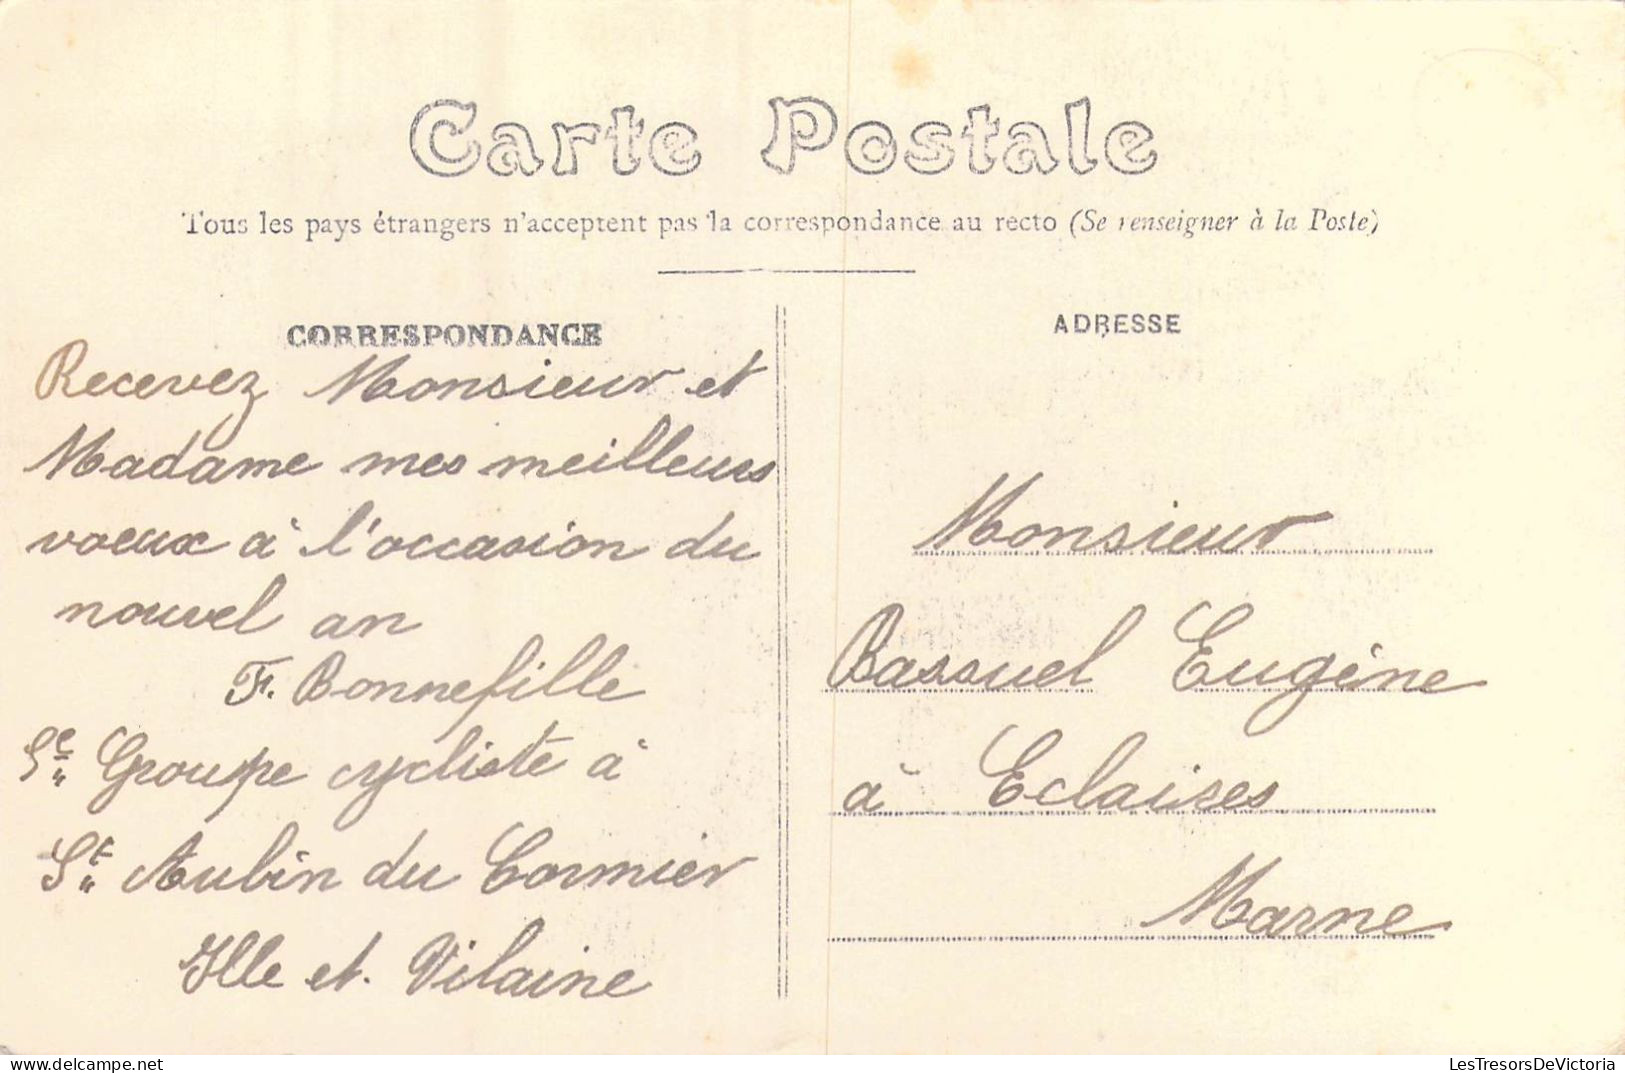 Carte Postale
Tous les pays étrangers n'acceptent pas la correspondance au recto (Se renseigner à la Poste)
CORRESPONDANCE
Recevez Monsieur et
Madame mes meilleurs
voeux à l'occasion du
nouvel an
F. Bonnefille
Groupe cycliste à
St Aubin du Cormier
Ille et Vilaine
ADRESSE
Monsieur
Bassuel Eugène
à Eclaires
Marne
LesTresorsDeVictoria